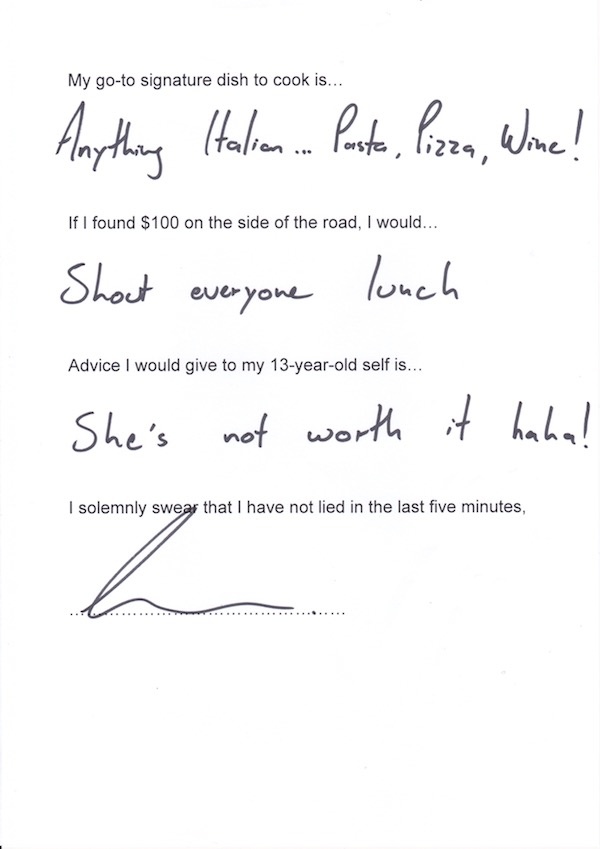 My go-to signature dish to cook is…
Anything Italian... Pasta, Pizza, Wine!
If I found $100 on the side of the road, I would…
Shout everyone lunch
Advice I would give to my 13-year-old self is…
She's not worth it haha!
I solemnly swear that I have not lied in the last five minutes,